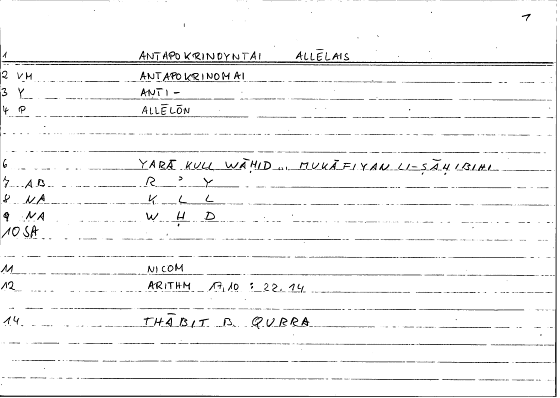 1
1 ANTAPOKRINOYNTAI ALLĒLAIS
2 VH ANTAPOKRINOMAI
3 Y ANTI-
4 P ALLĒLŌN
6 YARĀ KULL WĀḤID ... MUKĀFIYAN LI-ṢĀḤIBIHI
7 AB R ʾ Y
8 NA K L L
9 NA W Ḥ D
10 SA
11 NICOM
12 ARITHM 17,10 : 22.14
14 THĀBIT B. QURRA